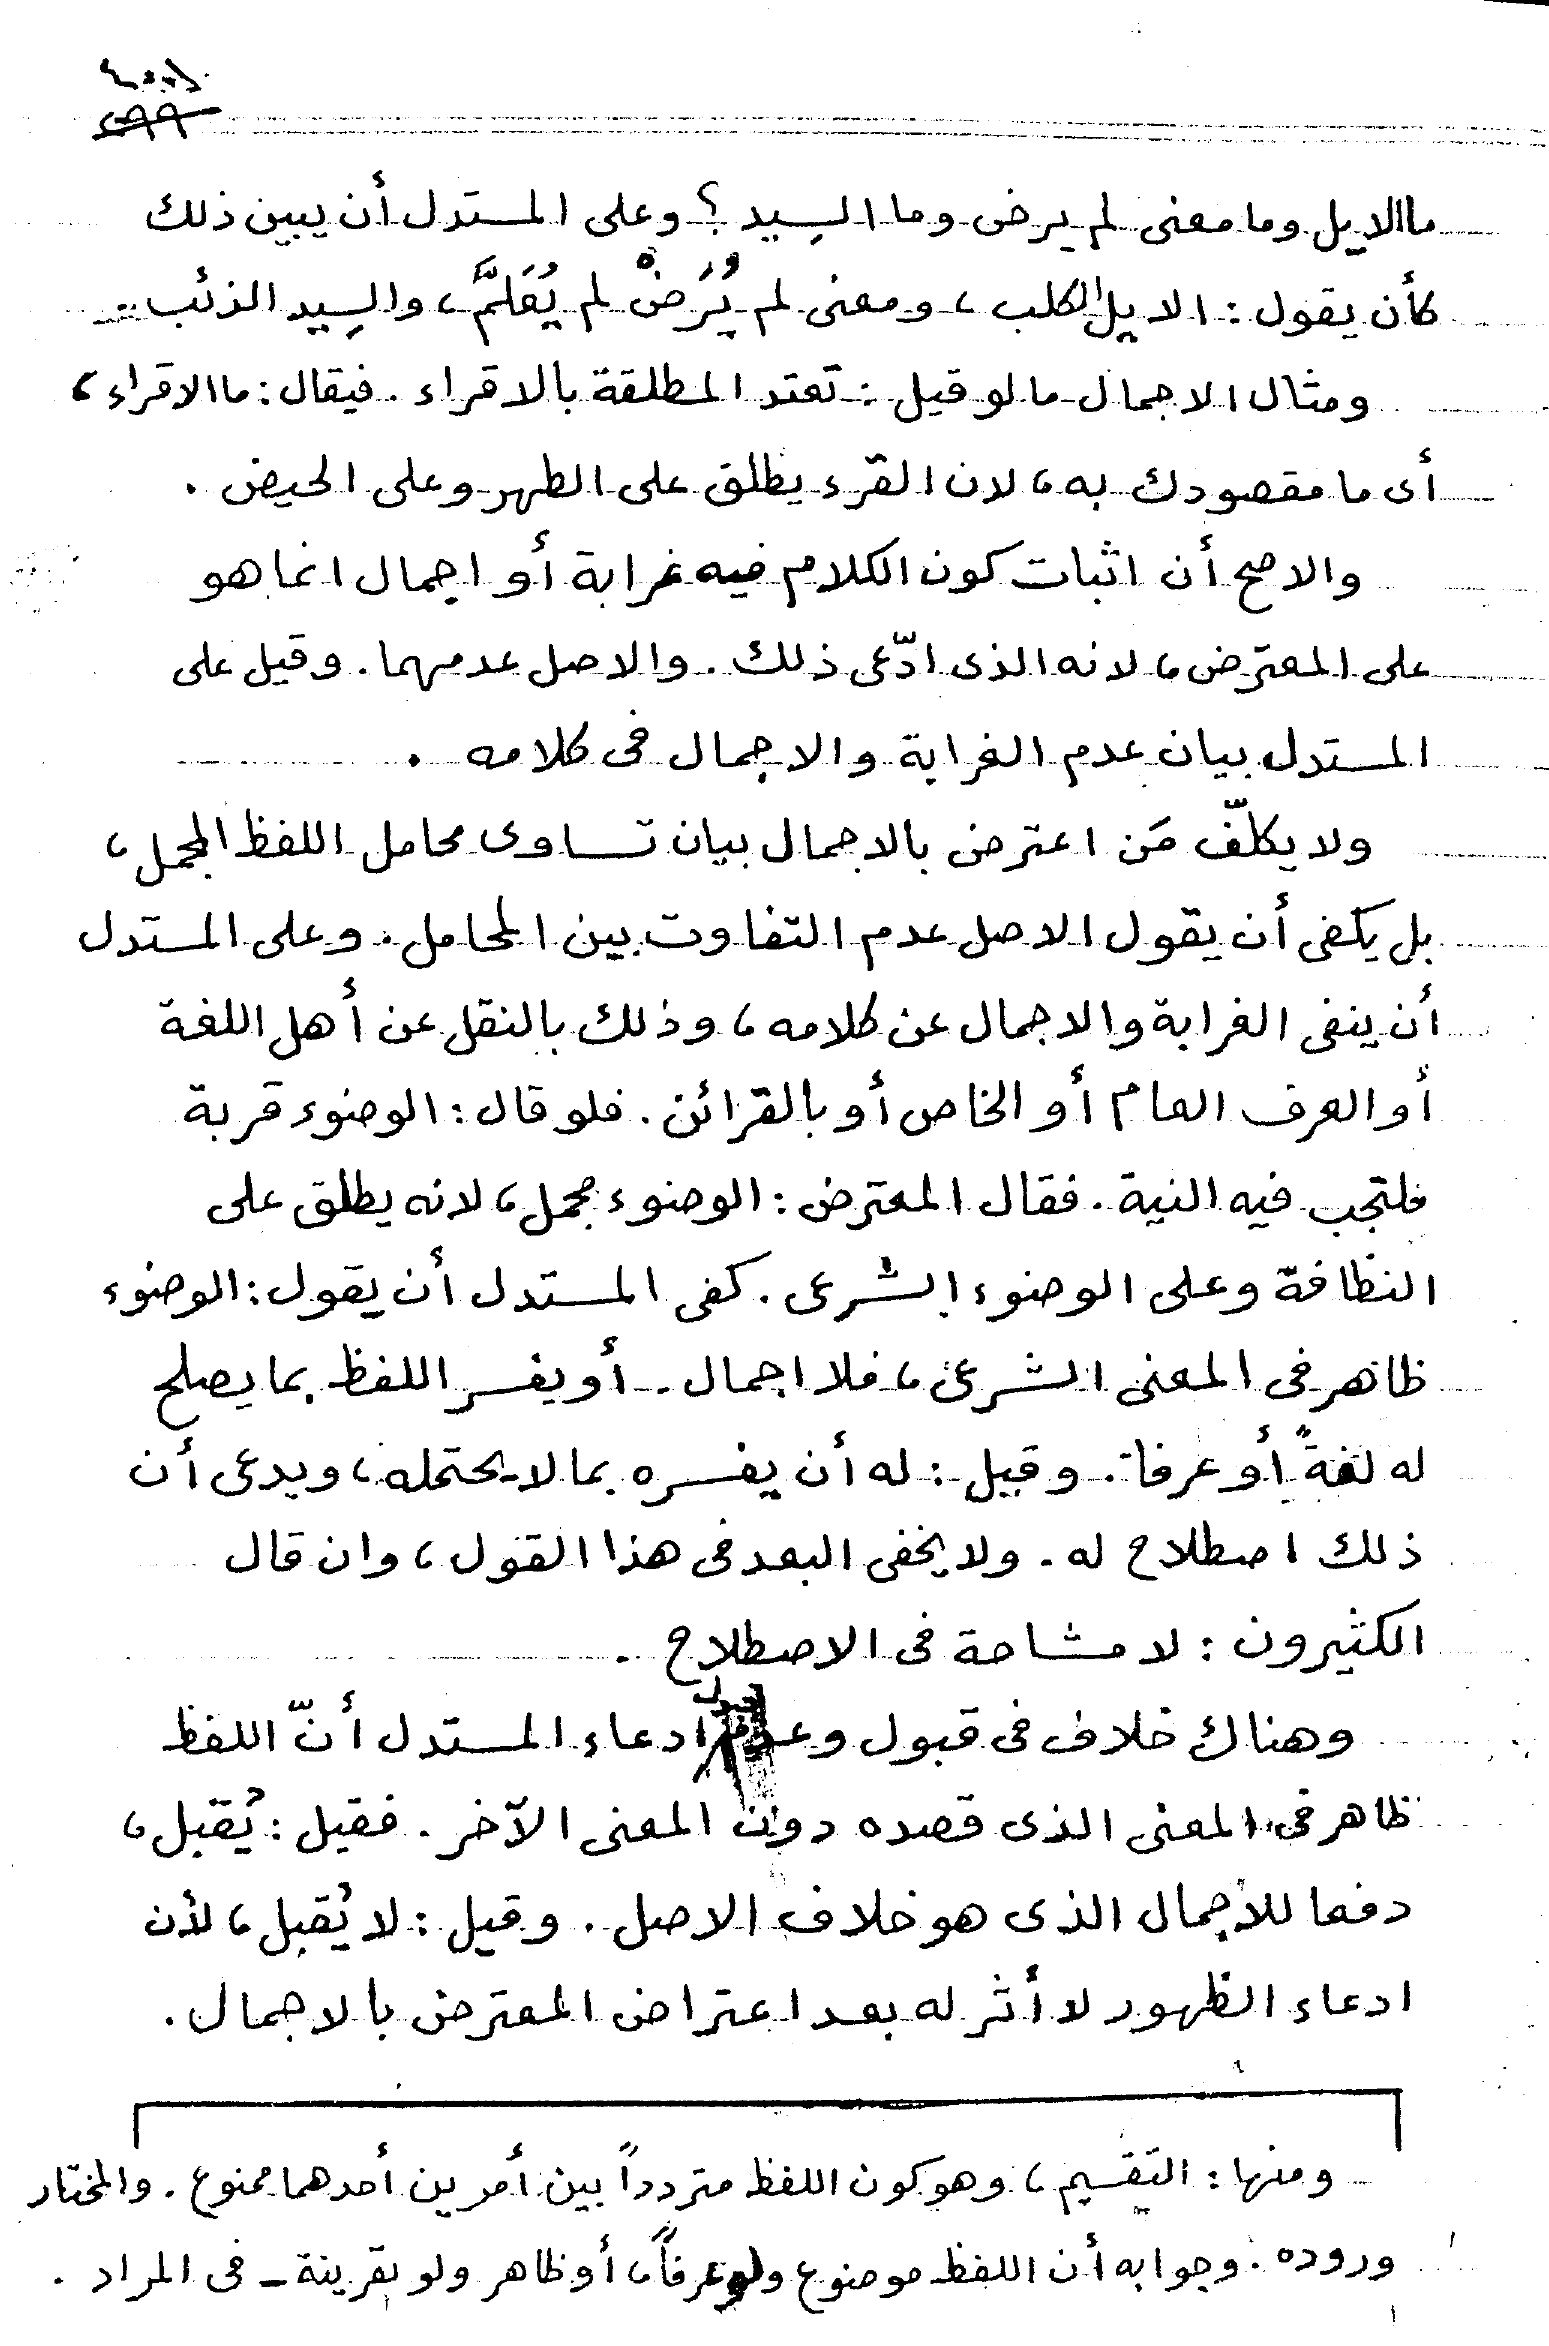 ما الايل وما معنى لم يرض وما السِيد ؟ وعلى المستدل أن يبين ذلك
كأن يقول : الايل الكلب ، ومعنى لم يُرَضْ لم يُعَلَّم ، والسِيد الذئب ..
ومثال الاجمال ما لو قيل : تعتد المطلقة بالاقراء . فيقال : ما الاقراء ،
أى ما مقصودك به ، لان القرء يطلق على الطهر وعلى الحيض .
والاصح أن اثبات كون الكلام فيه غرابة أو اجمال انما هو
على المعترض ، لانه الذى ادّعى ذلك . والاصل عدمهما . وقيل على
المستدل بيان عدم الغرابة والاجمال فى كلامه .
ولا يكلّف مَن اعترض بالاجمال بيان تساوى محامل اللفظ المجمل ،
بل يكفى أن يقول الاصل عدم التفاوت بين المحامل . وعلى المستدل
أن ينفى الغرابة والاجمال عن كلامه ، وذلك بالنقل عن أهل اللغة
أو العرف العام أو الخاص أو بالقرائن . فلو قال : الوضوء قربة
فلتجب فيه النية . فقال المعترض : الوضوء مجمل ، لانه يطلق على
النظافة وعلى الوضوء الشرعى . كفى المستدل أن يقول : الوضوء
ظاهر فى المعنى الشرعى ، فلا اجمال . أو يفسر اللفظ بما يصلح
له لغةً أو عرفا . وقيل : له أن يفسره بما لا يحتمله ، ويدعى أن
ذلك اصطلاح له . ولا يخفى البعد فى هذا القول ، وان قال
الكثيرون : لا مشاحة فى الاصطلاح .
وهناك خلاف فى قبول وعدم ادعاء المستدل أنّ اللفظ
ظاهر فى المعنى الذى قصده دون المعنى الآخر . فقيل : يُقبل ،
دفعا للاجمال الذى هو خلاف الاصل . وقيل : لا يُقبل ، لأن
ادعاء الظهور لا أثر له بعد اعتراض المعترض بالاجمال .
ومنها : التقسيم ، وهو كون اللفظ متردداً بين أمرين أحدهما ممنوع . والمختار
وروده . وجوابه أن اللفظ موضوع ولو عرفاً ، أو ظاهر ولو بقرينة ـ فى المراد .